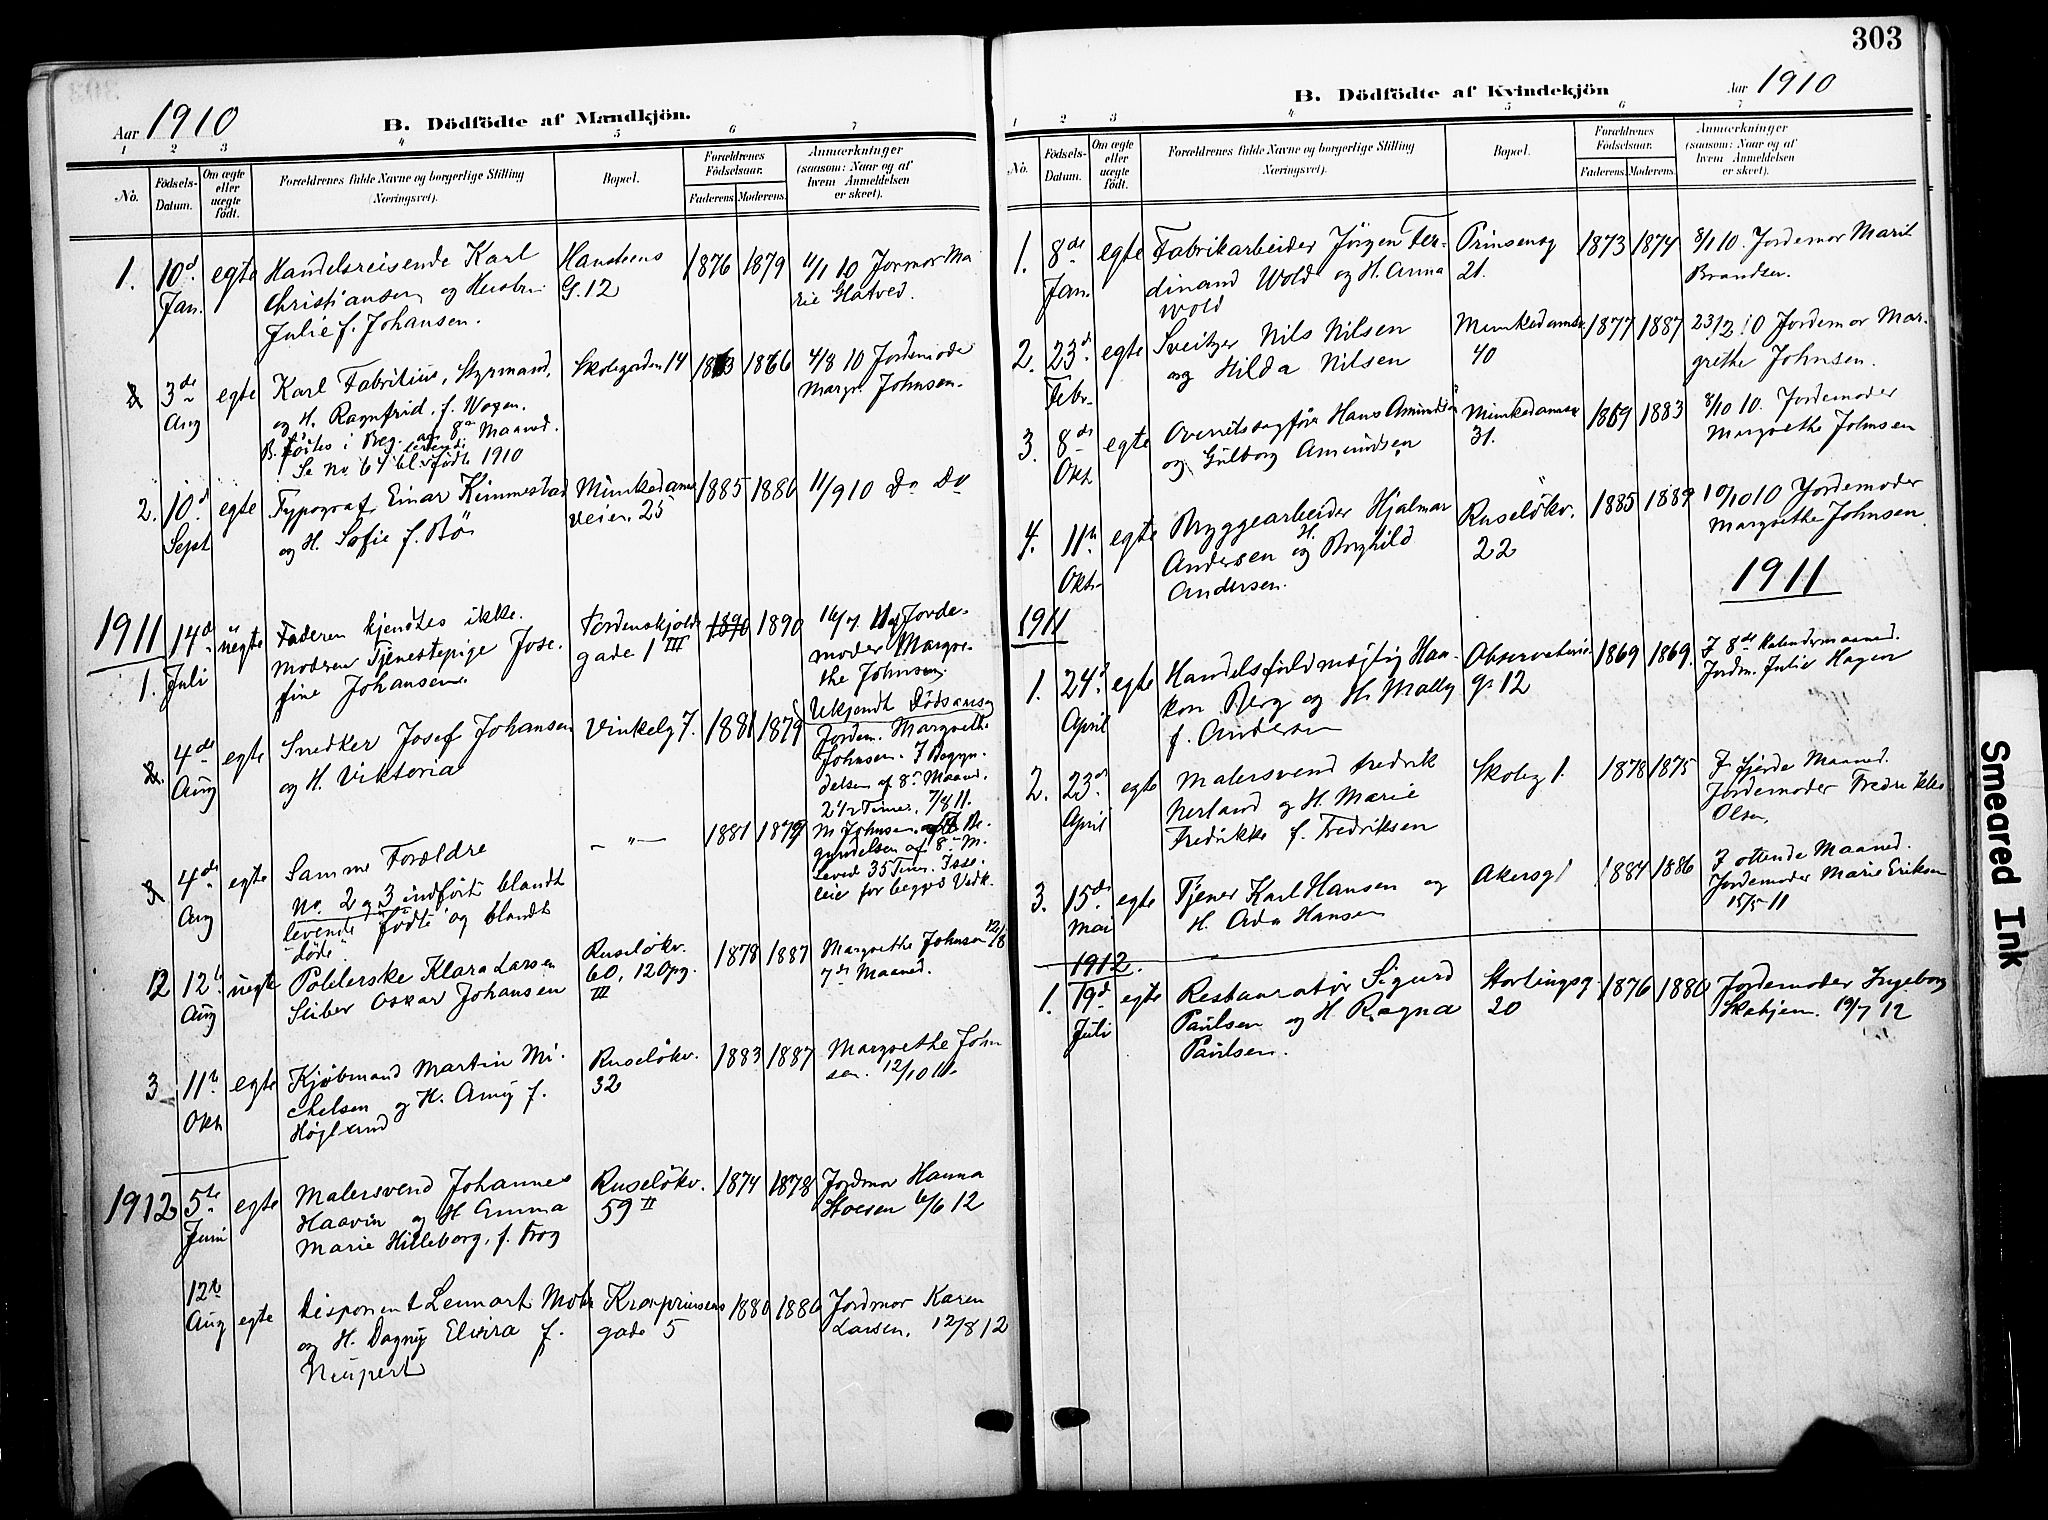 303
Aar 1910
B. Dödfödte af Mandkjön.
1 2 3 4 5 6 7
No.
Födsels-
Datum.
Om ægte
eller
uægte
födt.
Forældrenes fulde Navne og borgerlige Stilling
(Næringsvei).
Bopæl.
Forældrenes
Födselsaar.
Faderens Moderens.
Anmærkninger
(saasom: Naar og af
hvem Anmeldelsen
er skeet).
1. 10d. Jan. egte Handelsreisende Karl
Christiansen og Hustru
Julie f. Johansen.
Hansteens
G. 12
1876 1879
11/1 10 Jormor Ma
rie Glatved.
2 3de Aug egte Karl Fabritius, Styrmand,
og H. Ragnfrid, f. Wogen.
B. födtes i Beg. af 8de Maaned.
Se No 64 bl. levende födte 1910
Skolegaden 14
1863 1866
4/8 10 Jordemoder
Margr. Johnsen.
2. 10d. Sept egte Typograf Einar Kimmestad
og H. Sofie f. Bö
Munkedams
veien 25
1885 1886
11/9 10 Do Do
1911
1. 14d. Juli uegte Faderen kjendtes ikke.
Modren Tjenestepige Jose-
fine Johansen.
Tordenskjolds
gade 1 III
1890 1890
16/7 11 Jorde-
moder Margre-
the Johnsen.
Ukjendt Dödsaarsag
2. 4de Aug egte Snedker Josef Johansen
og H. Viktoria
Vinkelg 7.
1881 1879
Jordem. Margrethe
Johnsen. I Begyn-
delsen af 8de Maaned.
2 1/2 Timer. 7/8 11.
3 4de Aug egte Samme Forældre
No. 2 og 3 indfört blandt
levende födte og blandt
döde
- " -
1881 1879
M. Johnsen. Be-
gyndelsen af 8de M.
levede 35 Timer. Isse-
leie for begges Vedk.
2 12te Aug uegte Polilerske Klara Larsen
Sliber Oskar Johansen
Ruselökv.
60, 12 Opg.
III
1878 1887
Margrethe Johnsen 12/8
7de Maaned.
3 11te Okt egte Kjöbmand Martin Mi-
chelsen og H. Amy f.
Höglund
Ruselökv.
32
1883 1887
Margrethe John
sen. 12/10 11.
1912 5te Juni egte Malersvend Johannes
Haavin og H. Emma
Marie Hilleborg, f. Frog
Ruselökv.
59 II
1874 1878
Jordmor Hanna
6/6 12
12te Aug egte Disponent Lennart Mohr
og H. Dagny Elvira f.
Neupert
Kronprinsens
gade 5
1880 1886
Jordmor Karen
Larsen. 12/8 12
B. Dödfödte af Kvindekjön
Aar 1910
1 2 3 4 5 6 7
No.
Födsels-
Datum.
Om ægte
eller
uægte
födt.
Forældrenes fulde Navne og borgerlige Stilling
(Næringsvei).
Bopæl.
Forældrenes
Födselsaar.
Faderens. Moderens.
Anmærkninger
(saasom: Naar og af
hvem Anmeldelsen
er skeet).
1. 8de Jan. egte Fabrikarbeider Jörgen Fer-
dinand Wold og H. Anna
Wold
Prinsensg
21.
1873 1874
8/1 10. Jordemor Marit
Brandser.
2. 23d. Febr. egte Sveitzer Nils Nilsen
og Hilda Nilsen
Munkedamsv
40
1877 1887
23/2 10 Jordemor Mar-
grethe Johnsen.
3. 8de Okt egte Overretssagförer Hans Amundsen
og Gulborg Amundsen
Munkedamsv
31.
1869 1883
8/10 10. Jordemoder
Margrethe Johnsen
4. 11te Okt. egte Bryggearbeider Hjalmar
Andersen og H. Borghild
Andersen.
Ruselökv.
22
1885 1889
10/10 10 Jordemoder
Margrethe Johnsen.
1911
1911
1. 24d. April egte Handelsfuldmægtig Haa-
kon Berg og H. Mally
f. Andersen
Observatorie
g. 12
1869 1869.
I 8de Kalendermaaned.
Jordm. Julie Hagen
2. 23d. April egte Malersvend Fredrik
Nerland og H. Marie
Fredrikke f. Fredriksen
Skoleg 1.
1878 1875
I fjerde Maaned.
Jordemoder Fredrikke
Olsen.
3. 15de Mai egte Tjener Karl Hansen og
H. Ada Hansen
Akersg 1
1884 1886
I ottende Maaned.
Jordemoder Marie Eriksen
15/5 11
1912.
1. 19d. Juli egte Restauratör Sigurd
Paulsen og H. Ragna
Paulsen.
Stortingsg
20
1876 1880
Jordemoder Ingeborg
19/7 12
Smeared Ink